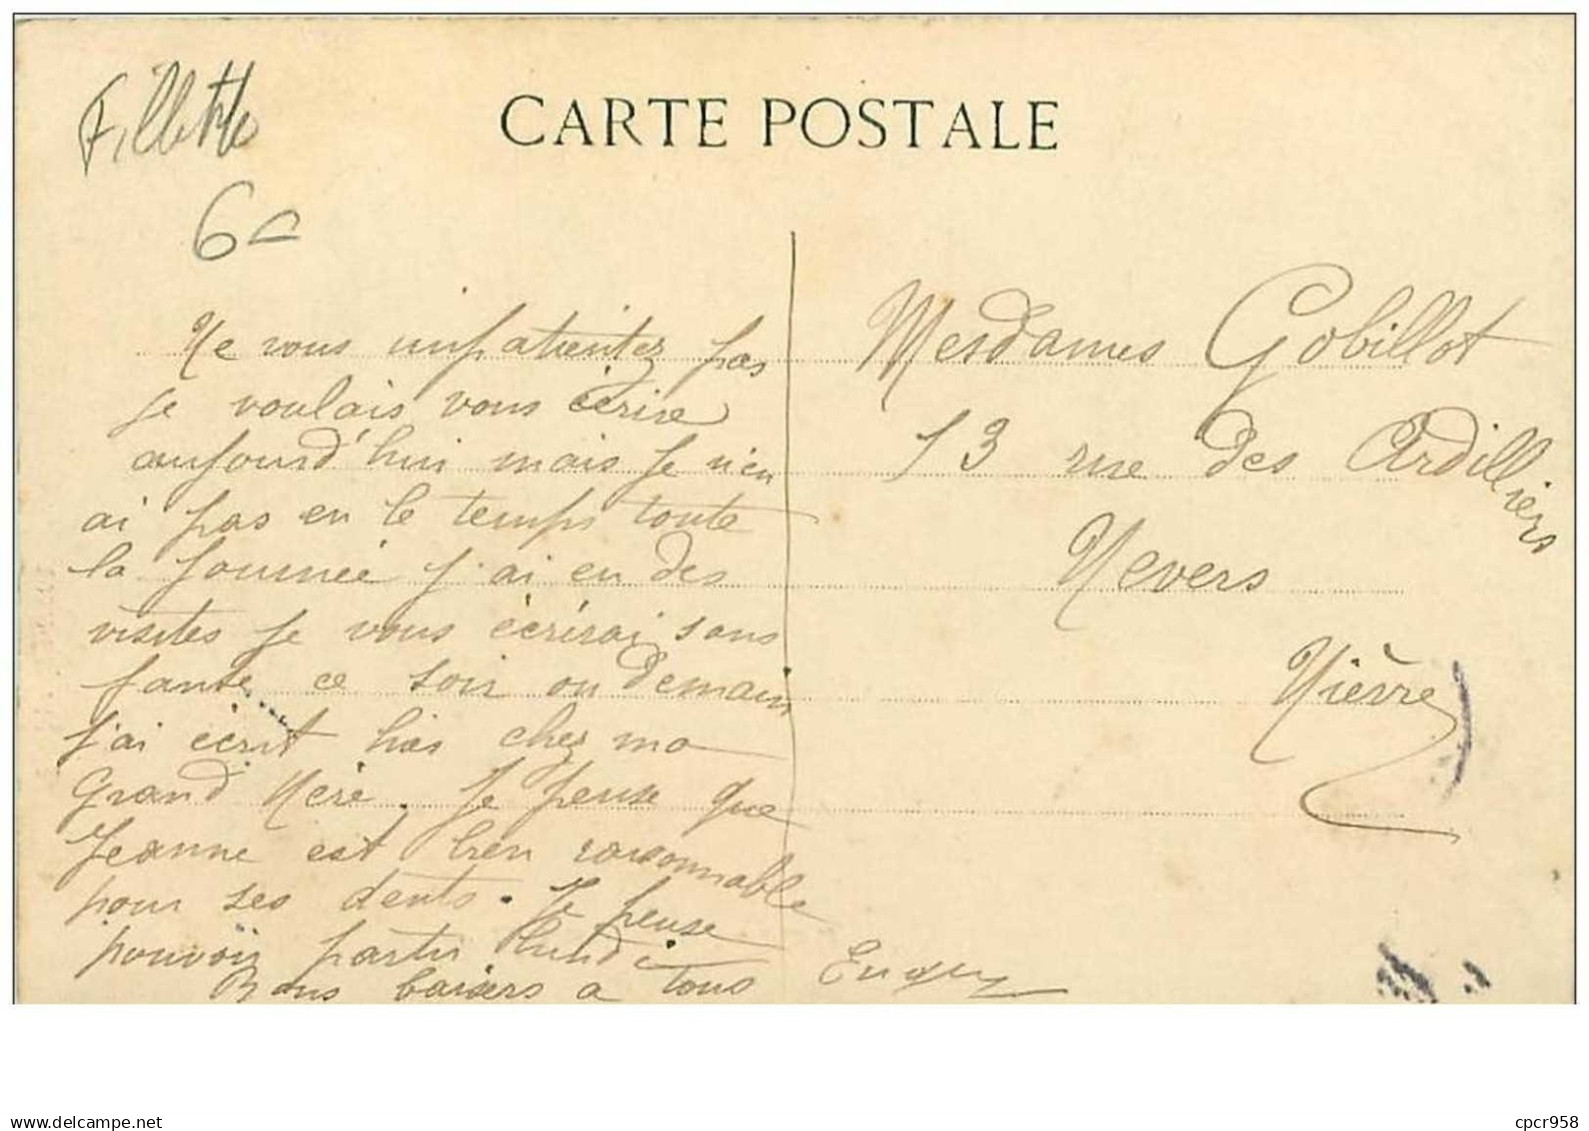 Fillette
CARTE POSTALE
6
Ne vous impatientez pas
je voulais vous écrire
aujourd'hui mais je n'en
ai pas eu le temps toute
la journée j'ai eu des
visites je vous écrirai sans
faute ce soir ou demain
j'ai écrit hier chez ma
Grand Mère. Je pense que
Jeanne est bien raisonnable
pour ses dents. Je pense
pouvoir partir lundi
Bons baisers a tous
Mesdames Gobillot
13 rue des Ardilliers
Nevers
Nièvre
www.delcampe.net
cpcr958